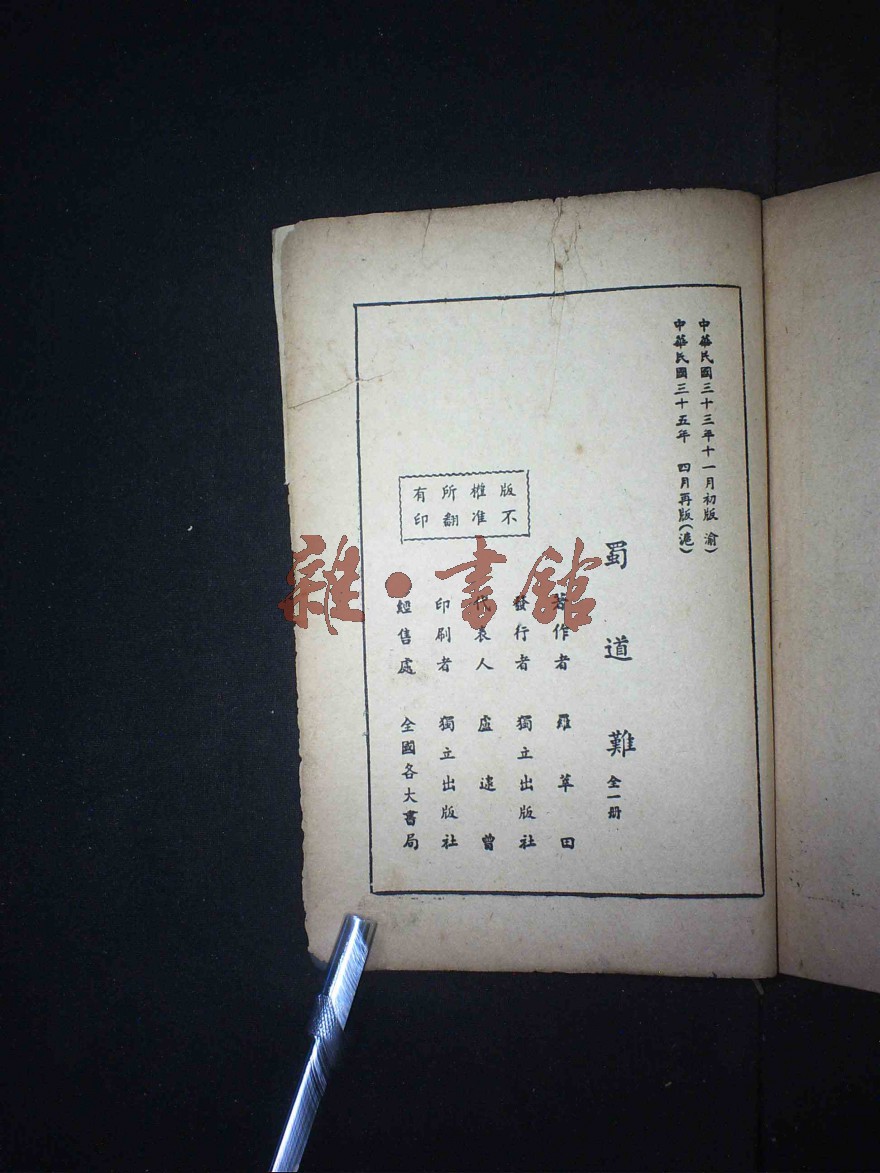 中華民國三十三年十一月初版 渝)
中華民國三十五年 四月再版(滬)
蜀道難 全一册
著作者 羅萃田
發行者 獨立出版社
代表人 盧逮曾
印刷者 獨立出版社
經售處 全國各大書局
版權所有
不准翻印
雜·書館